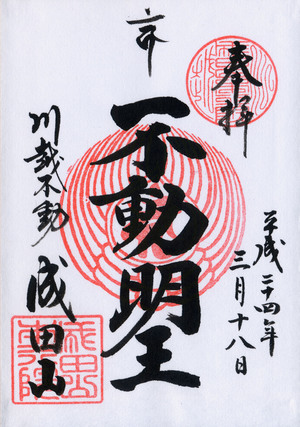 奉拝
平成二十四年
三月十八日
不動明王
川越不動
成田山